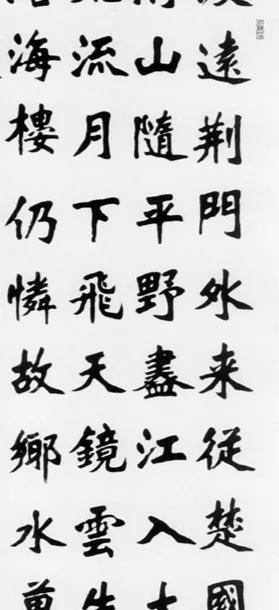 遠荊門外来從楚國
山隨平野盡江入大
流月下飛天鏡雲生
海樓仍憐故鄉水萬